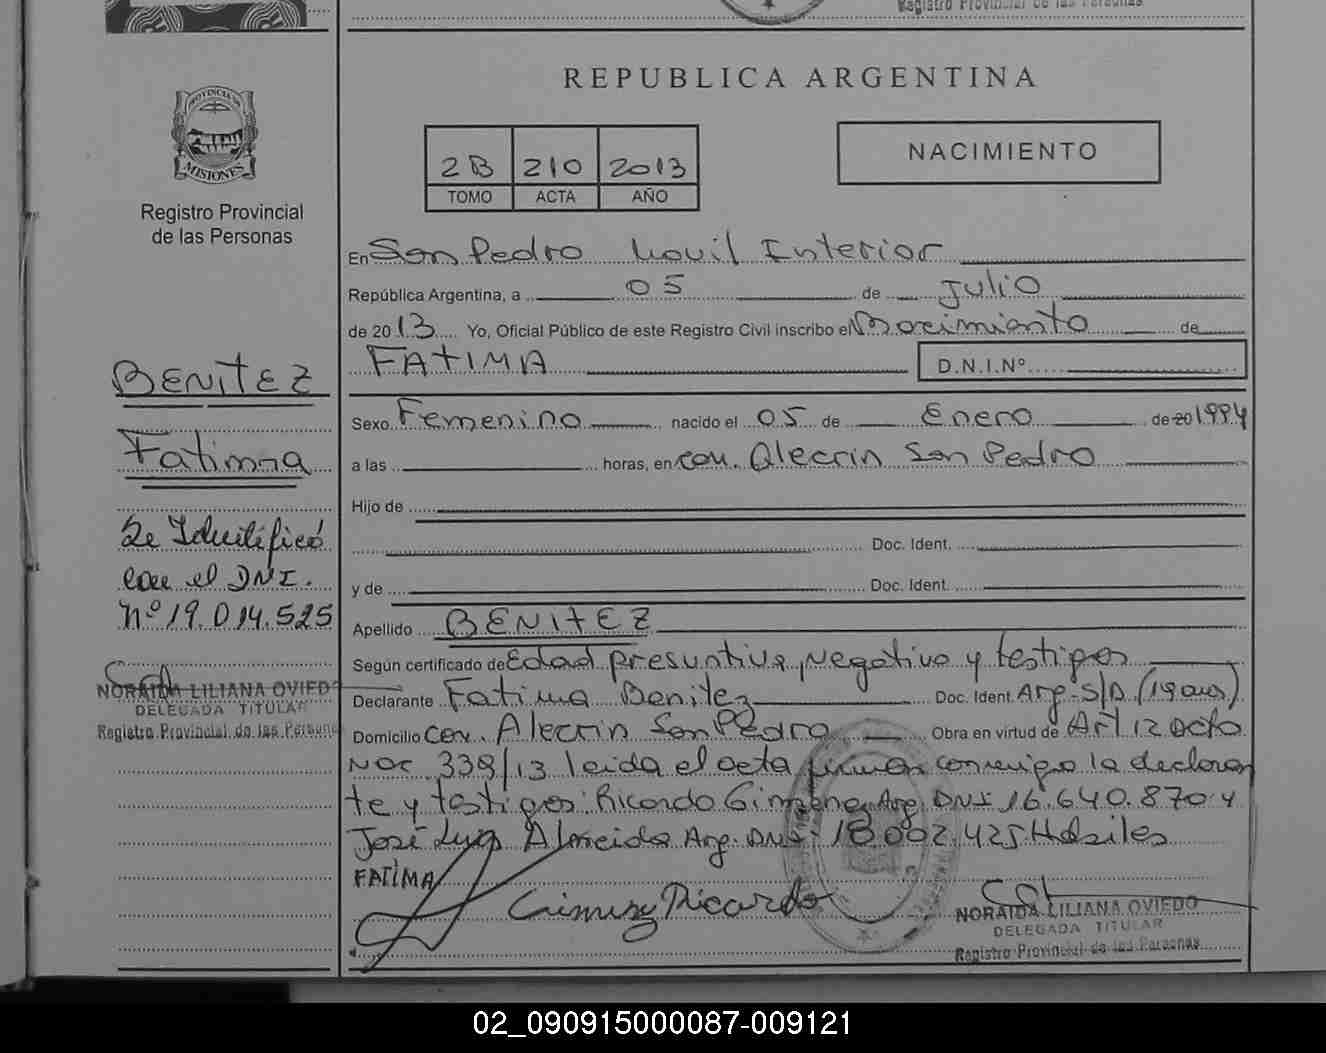 Registro Provincial de las Personas
REPUBLICA ARGENTINA
PROVINCIA DE
MISIONES
Registro Provincial
de las Personas
2B 210 2013
TOMO ACTA AÑO
NACIMIENTO
En San Pedro Movil Interior
República Argentina, a 05 de Julio
de 2013 Yo, Oficial Público de este Registro Civil inscribo el Nacimiento de
FATIMA D.N.I.Nº
BENITEZ
Fatima
Se Identificó
con el DNI.
Nº 19.014.525
NORAIDA LILIANA OVIEDO
DELEGADA TITULAR
Registro Provincial de las Personas
Sexo Femenino nacido el 05 de Enero de 20 1994
a las horas, en con. Alecrin San Pedro
Hijo de
Doc. Ident.
y de Doc. Ident.
Apellido BENITEZ
Según certificado de Edad presuntiva, negativo y testigos
Declarante Fatima Benitez Doc. Ident. Arg. S/D. (19 años)
Domicilio con. Alecrin San Pedro Obra en virtud de Art 12 Acta
NAC 338/13 leida el acta firman conmigo la declaran
te y testigos: Ricardo Gimenez Arg. DNI 16.640.870 y
José Luis Almeida Arg. DNI: 18.002.425 Habiles
FATIMA
Gimenez Ricardo
NORAIDA LILIANA OVIEDO
DELEGADA TITULAR
Registro Provincial de las Personas
02_090915000087-009121